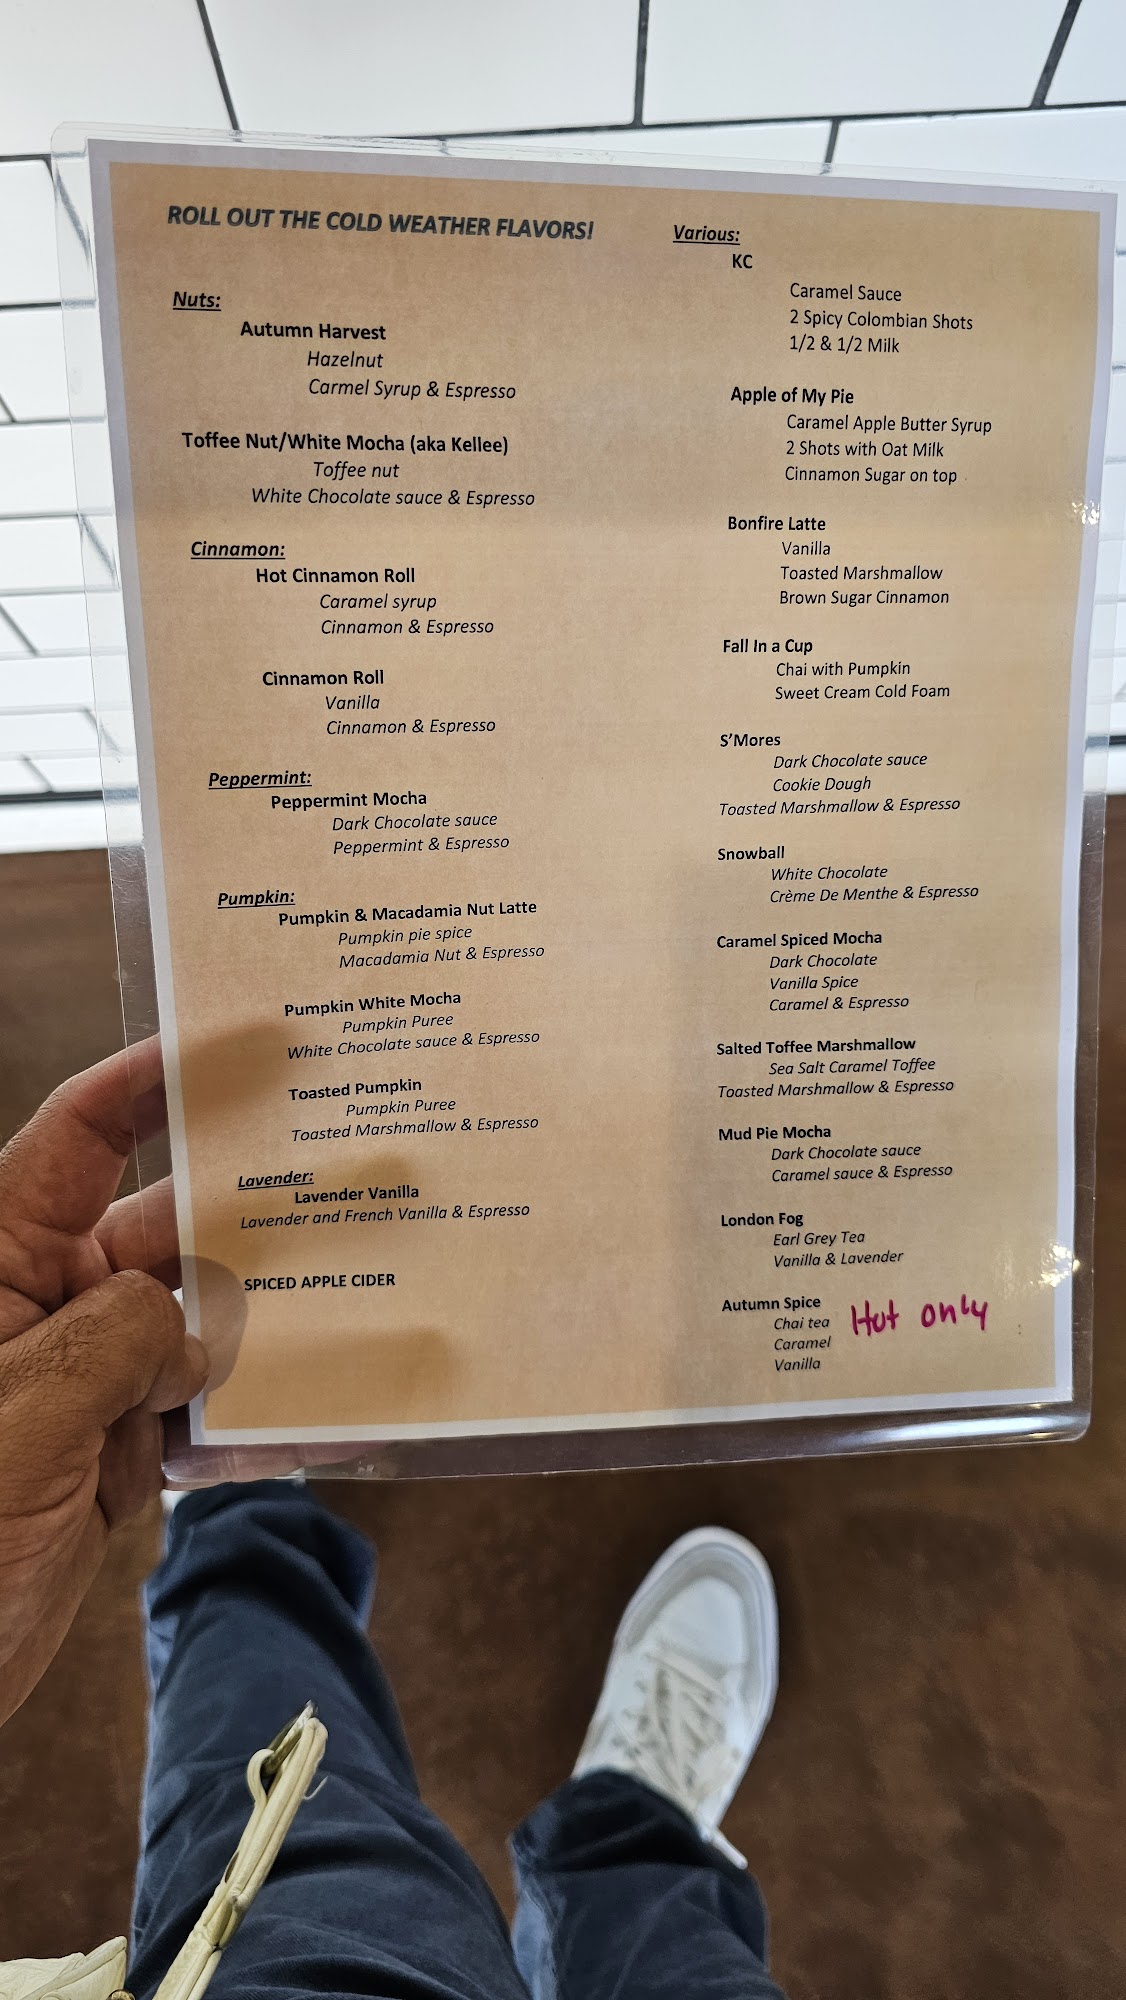 ROLL OUT THE COLD WEATHER FLAVORS!
Nuts:
Autumn Harvest
Hazelnut
Carmel Syrup & Espresso
Toffee Nut/White Mocha (aka Kellee)
Toffee nut
White Chocolate sauce & Espresso
Cinnamon:
Hot Cinnamon Roll
Caramel syrup
Cinnamon & Espresso
Cinnamon Roll
Vanilla
Cinnamon & Espresso
Peppermint:
Peppermint Mocha
Dark Chocolate sauce
Peppermint & Espresso
Pumpkin:
Pumpkin & Macadamia Nut Latte
Pumpkin pie spice
Macadamia Nut & Espresso
Pumpkin White Mocha
Pumpkin Puree
White Chocolate sauce & Espresso
Toasted Pumpkin
Pumpkin Puree
Toasted Marshmallow & Espresso
Lavender:
Lavender Vanilla
Lavender and French Vanilla & Espresso
SPICED APPLE CIDER
Various:
KC
Caramel Sauce
2 Spicy Colombian Shots
1/2 & 1/2 Milk
Apple of My Pie
Caramel Apple Butter Syrup
2 Shots with Oat Milk
Cinnamon Sugar on top
Bonfire Latte
Vanilla
Toasted Marshmallow
Brown Sugar Cinnamon
Fall In a Cup
Chai with Pumpkin
Sweet Cream Cold Foam
S'Mores
Dark Chocolate sauce
Cookie Dough
Toasted Marshmallow & Espresso
Snowball
White Chocolate
Crème De Menthe & Espresso
Caramel Spiced Mocha
Dark Chocolate
Vanilla Spice
Caramel & Espresso
Salted Toffee Marshmallow
Sea Salt Caramel Toffee
Toasted Marshmallow & Espresso
Mud Pie Mocha
Dark Chocolate sauce
Caramel sauce & Espresso
London Fog
Earl Grey Tea
Vanilla & Lavender
Autumn Spice
Chai tea
Caramel
Vanilla
Hot only